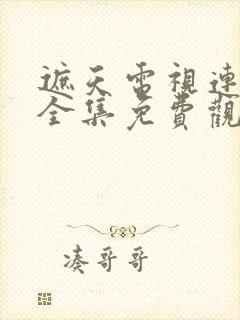 遮天電視連
全集免費觀
凑哥哥